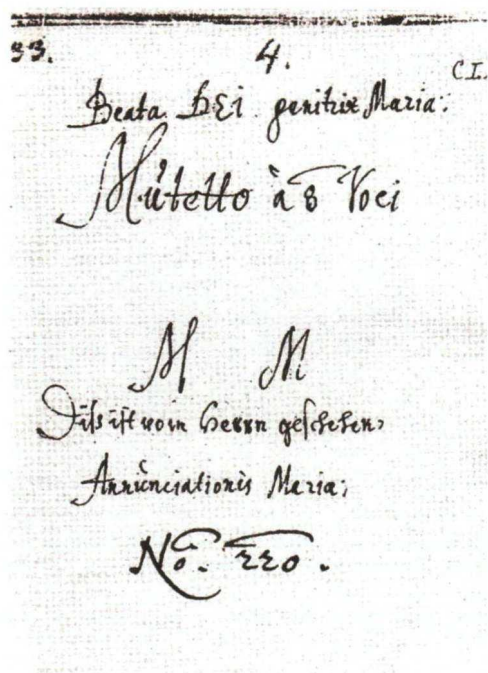 33.
4.
C I.
Beata DEi genitrix Maria:
Mùtetto à 8 Voci
M M
Diss ist vom Herrn geschehen,
Annùnciationis Mariæ;
No. 220.